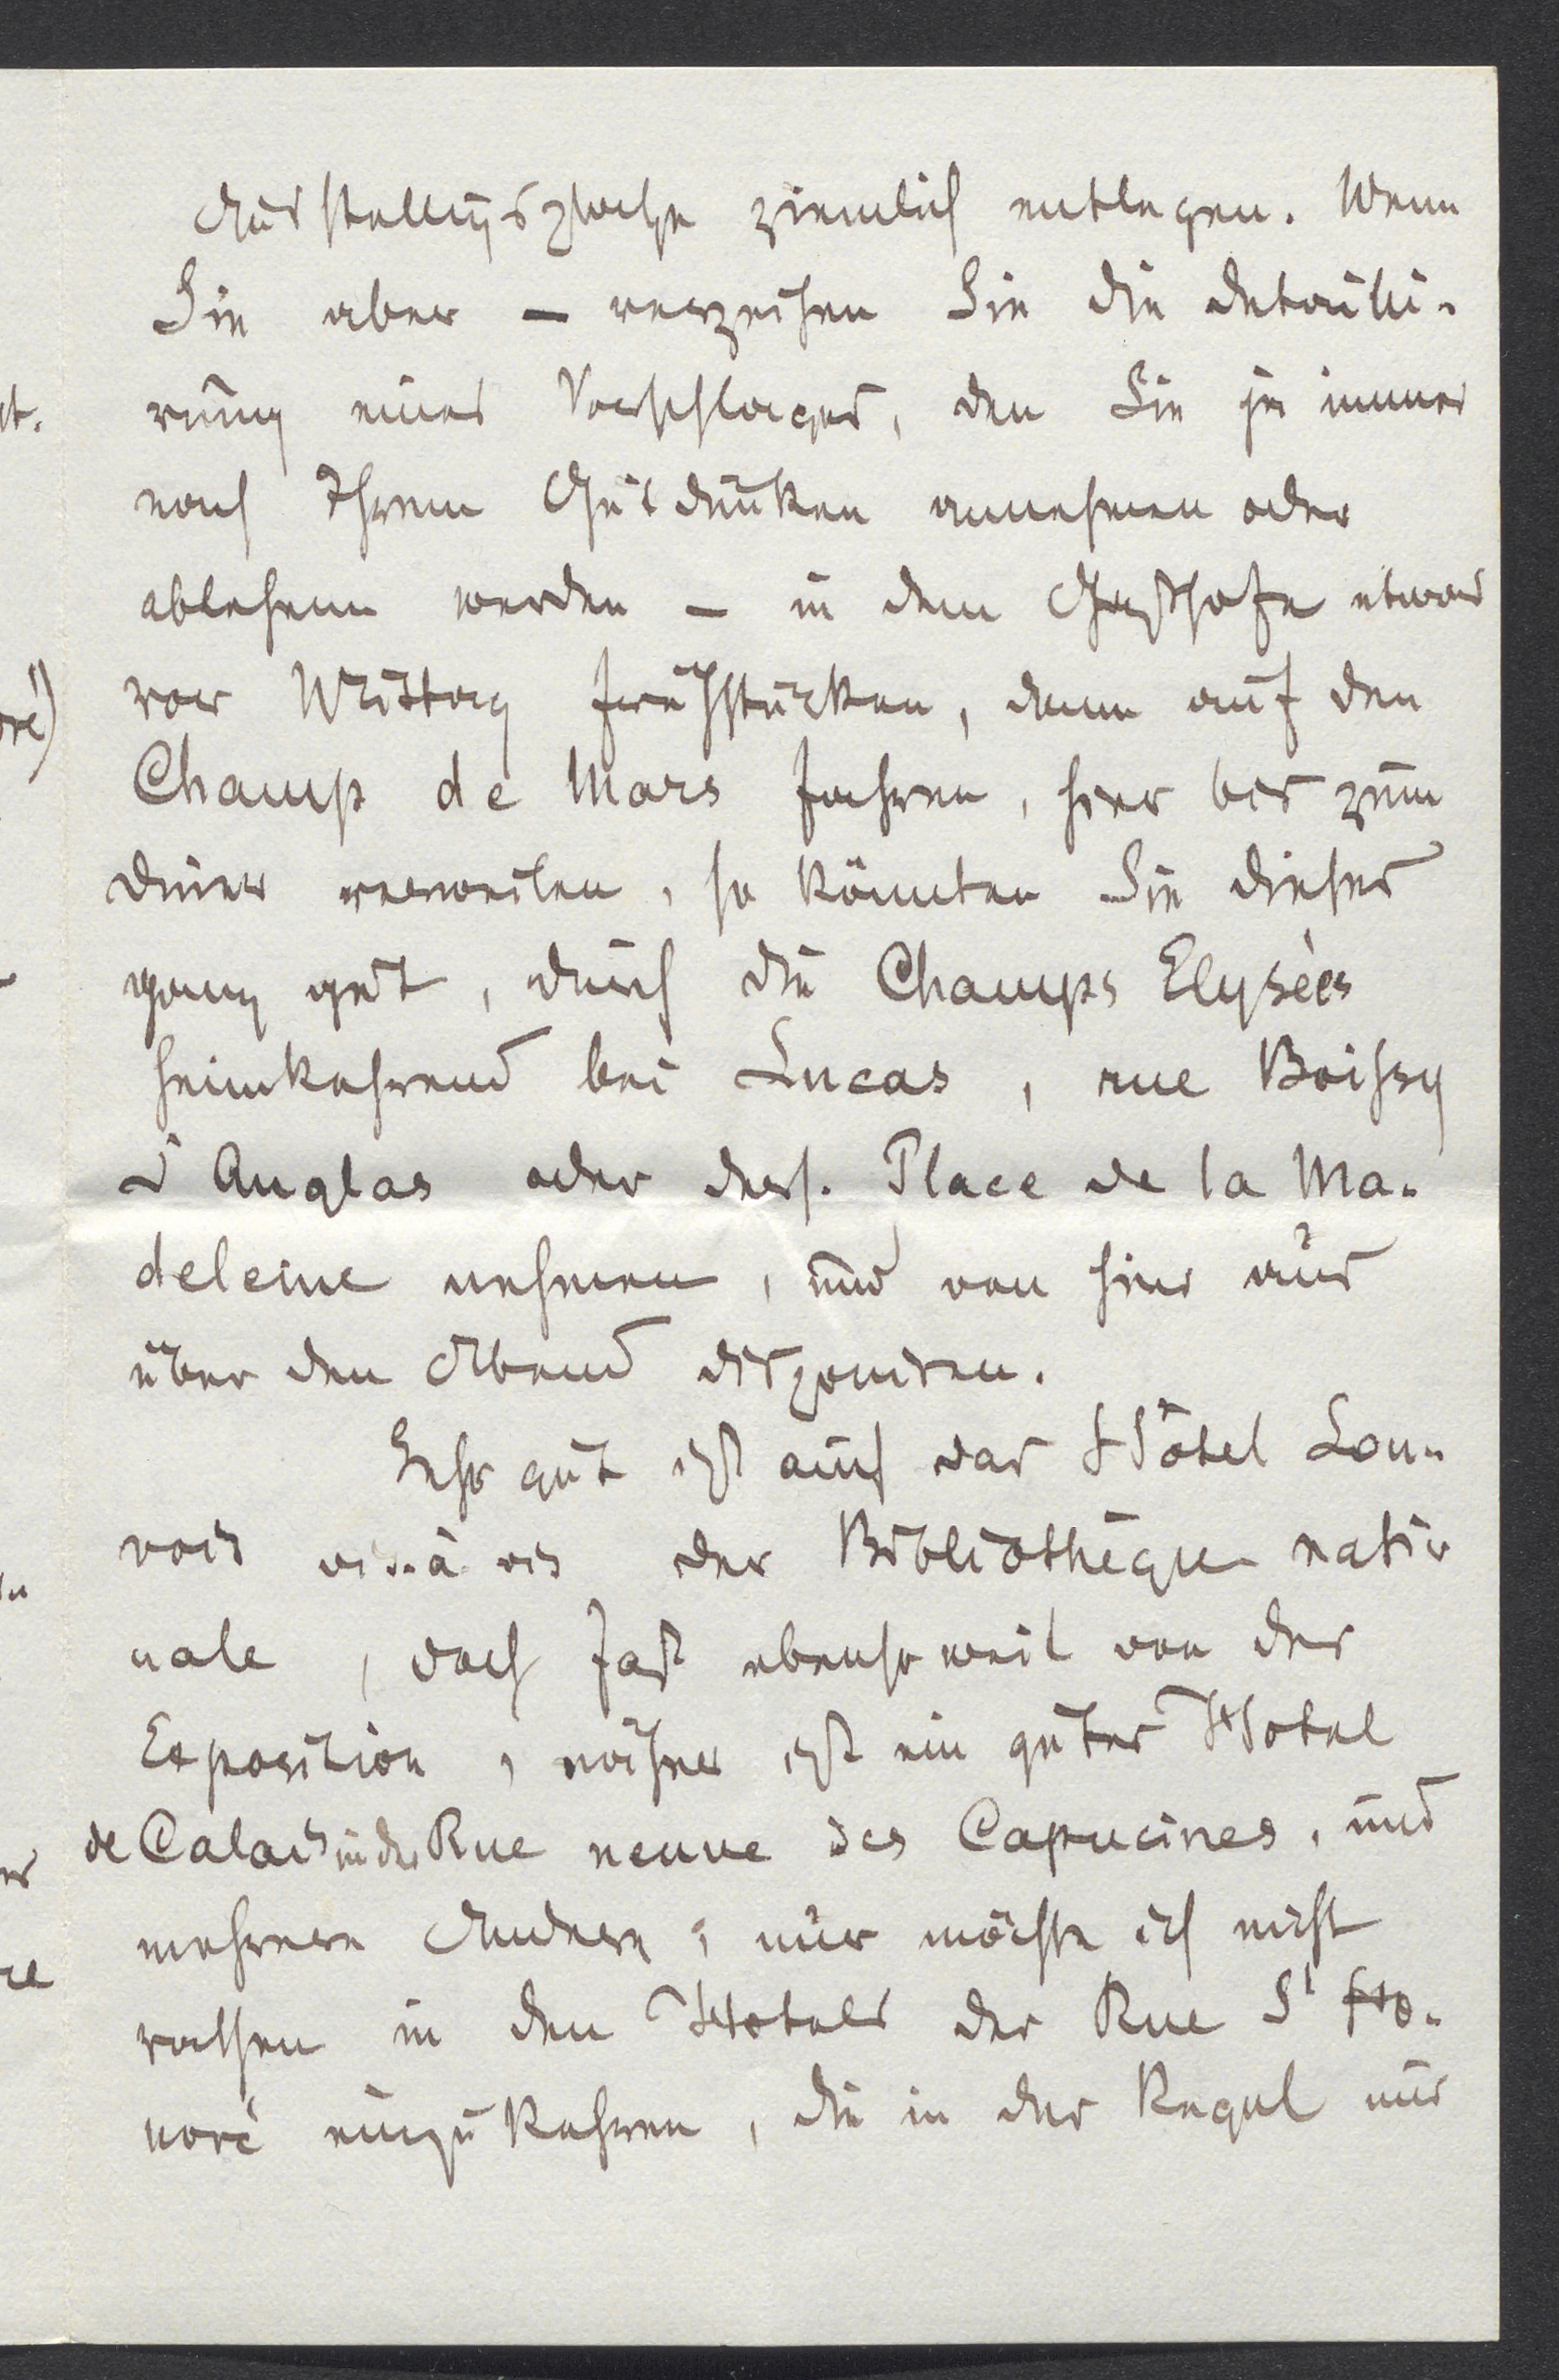 Ausstellungsplatze ziemlich entlegen. Wenn
Sie aber – verzeihen Sie die detailli-
rung eines Vorschlages, den Sie ja immer
nach Ihrem Gutdünken annehmen oder
ablehnen werden – in dem Gasthofe etwas
vor Mittag frühstücken, dann auf den
Champ de Mars fahren, hier bis zum
diner verweilen, so könnten Sie dieses
ganz gut, durch die Champs Elysées
heimkehrend bei Lucas, rue Boissy
d'Anglas oder Place de la Ma-
deleine nehmen, und von hier aus
über den Abend disponiren.
Sehr gut ist auch das Hôtel Lou-
vois vis-à-vis der Bibliothèque natio
nale, doch fast ebenso weit von der
Exposition, näher ist ein gutes Hotel
de Calais in der Rue neuve des Capucines, und
mehrere Andere; nur möchte ich nicht
rathen in den Hotels der Rue St Ho-
noré einzukehren, die in der Regel nur